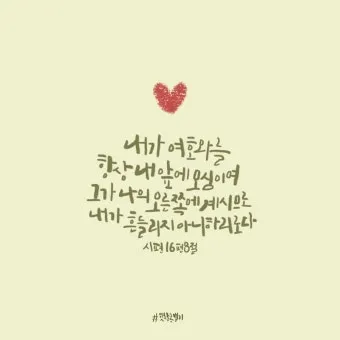 내가 여호와를
항상 내 앞에 모심이여
그가 나의 오른쪽에 계시므로
내가 흔들리지 아니하리로다
시편 16편8절